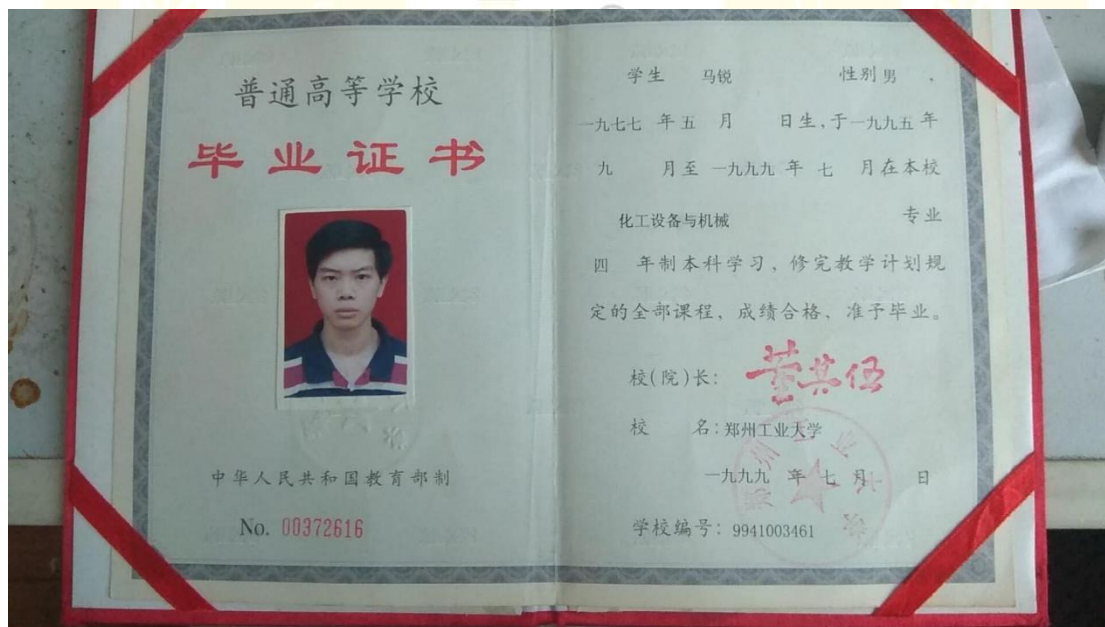 普通高等学校
毕业证书
中华人民共和国教育部制
No. 00372616
学生 马锐 性别 男 .
一九七七 年 五 月 日生,于一九九五 年
九 月至 一九九九 年 七 月在本校
化工设备与机械 专业
四 年制本科学习、修完教学计划规
定的全部课程、成绩合格、准予毕业。
校(院)长: 董其伍
校 名: 郑州工业大学
一九九九 年 七 月 日
学校编号: 9941003461